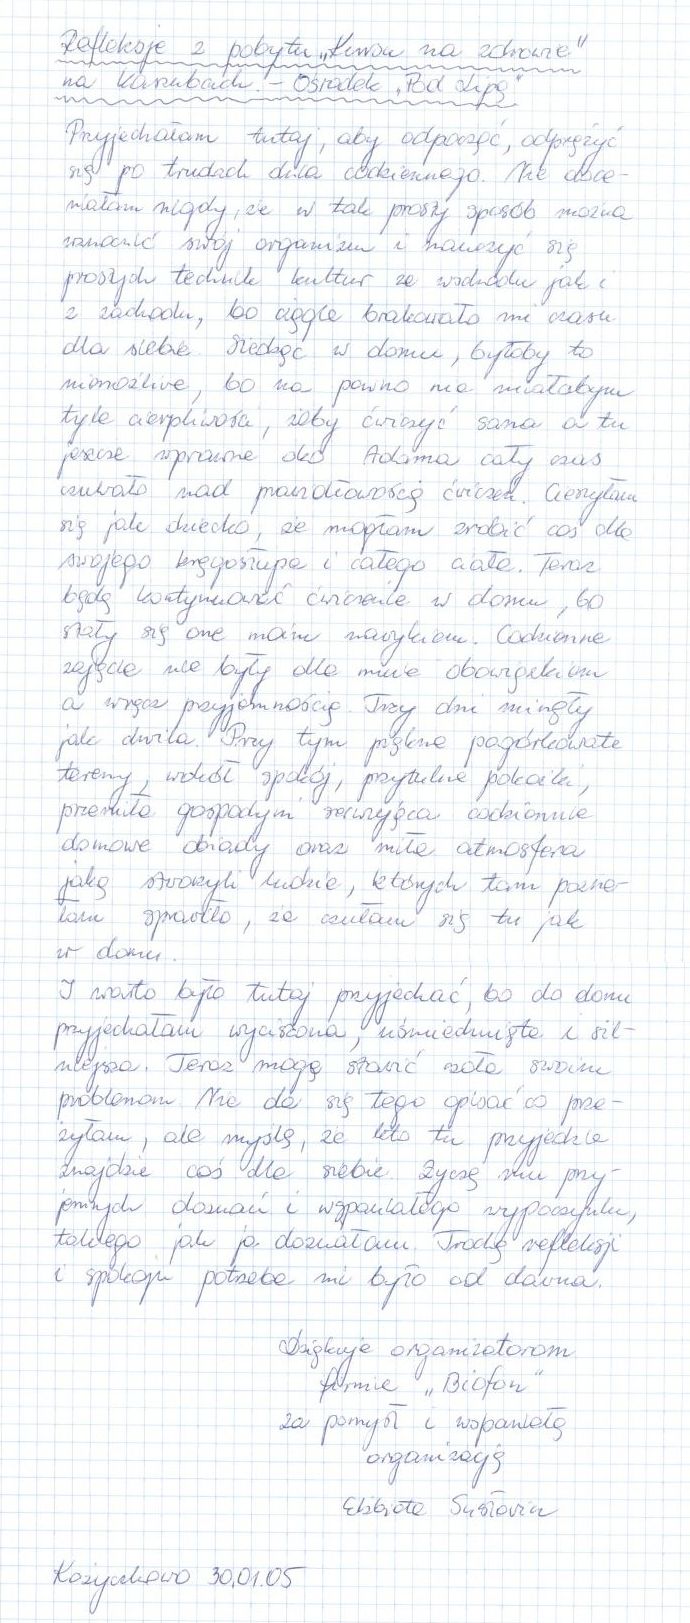 Refleksje z pobytu „Kurów na zdrowie"
na Kaszubach. – Ośrodek „Pod Lipą"
Przyjechałam tutaj, aby odpocząć, odprężyć
się po trudach dnia codziennego. Nie doce-
niałam nigdy, że w tak prosty sposób można
wzmocnić swój organizm i nauczyć się
prostych technik kultur ze wschodu jak i
z zachodu, bo ciągle brakowało mi czasu
dla siebie. Siedząc w domu, byłoby to
niemożliwe, bo na pewno nie miałabym
tyle cierpliwości, żeby ćwiczyć sama a tu
jeszcze wprawne oko Adama cały czas
czuwało nad prawidłowością ćwiczeń. Cieszyłam
się jak dziecko, że mogłam zrobić coś dla
swojego kręgosłupa i całego ciała. Teraz
będę kontynuować ćwiczenie w domu, bo
stały się one moim nawykiem. Codzienne
zajęcia nie były dla mnie obowiązkiem
a wręcz przyjemnością. Trzy dni minęły
jak chwila. Przy tym piękne pagórkowate
tereny, wokół spokój, przytulne pokoiki,
przemiła gospodyni serwująca codziennie
domowe obiady oraz miła atmosfera
jaką stworzyli ludzie, których tam pozna-
łam sprawiło, że czułam się tu jak
w domu.
I warto było tutaj przyjechać, bo do domu
przyjechałam wyciszona, uśmiechnięta i sil-
niejsza. Teraz mogę stawić czoła swoim
problemom. Nie da się tego opisać co prze-
żyłam, ale myślę, że kto tu przyjedzie
znajdzie coś dla siebie. Życzę mu przy-
jemnych doznań i wspaniałego wypoczynku,
takiego jak ja doznałam. Trochę refleksji
i spokoju potrzeba mi było od dawna.
Dziękuje organizatorom
firmie „Biofon"
za pomysł i wspaniałą
organizację
Elżbieta
30.01.05